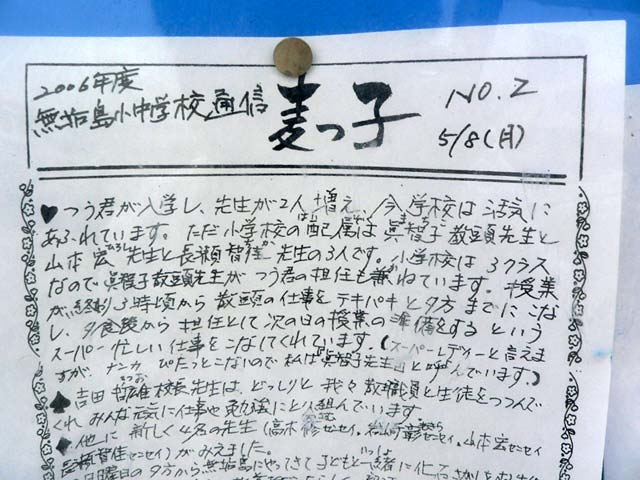 2006年度
無垢島小中学校通信
麦っ子
NO.2
5/8(月)
♥つう君が入学し、先生が2人増え、今学校は活気に
あふれています。ただ小学校の配属は眞智子教頭先生と
山本宏先生と長瀬智佳先生の3人です。小学校は3クラス
なので眞智子教頭先生がつう君の担任も兼ねています。授業
が終わり3時頃から教頭の仕事をテキパキと夕方までにこな
し、夕食後から担任として次の日の授業の準備をするという
スーパー忙しい仕事をこなしてくれています。(スーパーレディーと言えま
すが、ナンカぴたっとこないので私は"眞智子先生"と呼んでいます。)
♠吉田哲雄校長先生は、どっしりと我々教職員と生徒をつつんで
くれ、みんな元気に仕事や勉強にとり組んでいます。
♠他に新しく4名の先生(高木修センセイ、彰センセイ、山本宏センセイ
長瀬智佳センセイ)がみえました。
日曜日の夕方から無垢島にやってきて子どもと一緒に化石